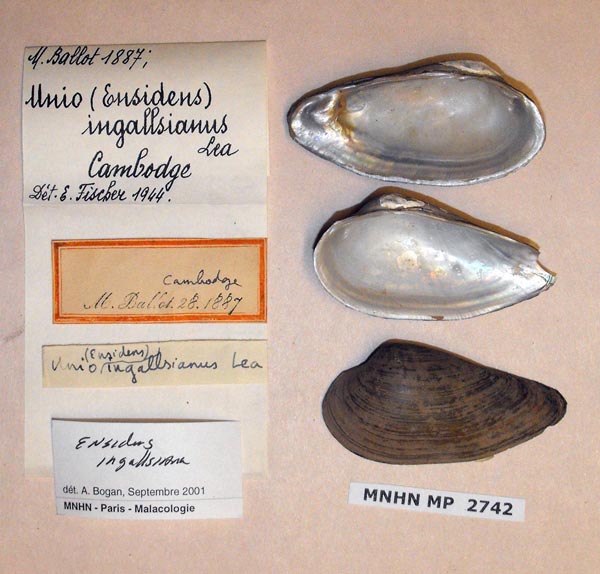 M. Ballot 1887;
Unio (Ensidens)
ingallsianus
Lea
Cambodge
Dét. E. Fischer 1944.
Cambodge
M. Ballot. 28. 1887
(Ensidens)
Unio ingallsianus Lea
Ensidens
ingallsiana
dét. A. Bogan, Septembre 2001
MNHN - Paris - Malacologie
MNHN MP 2742